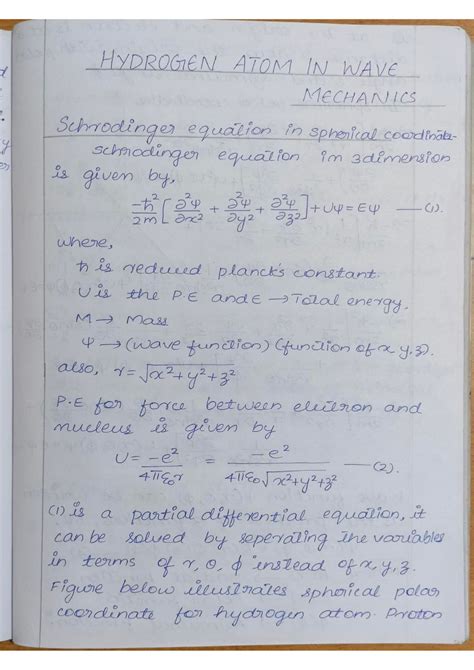 HYDROGEN ATOM IN WAVE
MECHANICS
Schrodinger equation in spherical coordinate-
schrodinger equation in 3dimension
is given by,
-ħ²/2m [∂²Ψ/∂x² + ∂²Ψ/∂y² + ∂²Ψ/∂z²] + UΨ = EΨ — (1).
where,
ħ is reduced planck's constant.
U is the P.E and E → Total energy.
M → Mass
Ψ → (wave function) (function of x y, z).
also, r = √x²+y²+z²
P.E for force between electron and
nucleus is given by
U = -e²/4πε₀r = -e²/4πε₀√x²+y²+z² — (2).
(1) is a partial differential equation, it
can be solved by seperating the variables
in terms of r, θ, ϕ instead of x, y, z.
Figure below illustrates spherical polar
coordinate for hydrogen atom. Proton